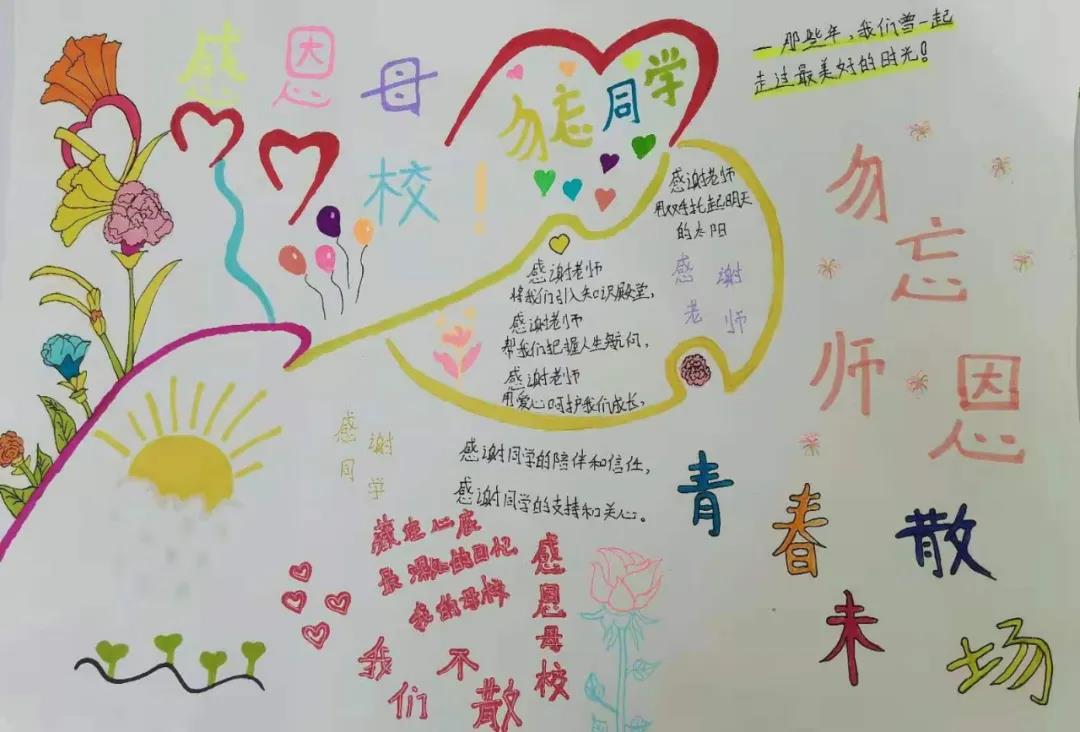 感恩母
校!
勿忘同学
一那些年,我们曾一起
走过最美好的时光!
感谢老师
用双手托起明天
的太阳
感谢
老师
感谢老师
将我们引入知识殿堂,
感谢老师
帮我们把握人生航向,
感谢老师
用爱心呵护我们成长,
勿忘
师恩
感谢
同学
感谢同学的陪伴和信任,
感谢同学的支持和关心。
藏在心底
最深处的回忆
亲的母校
感恩母校
我们不散
青春未散场